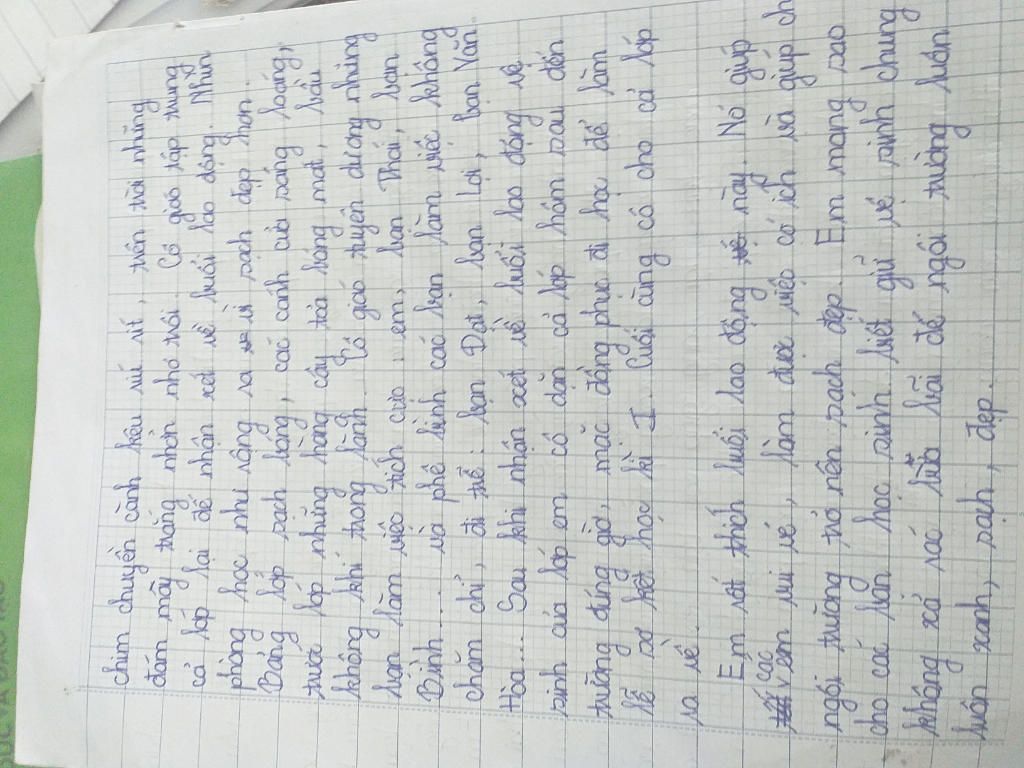 chim chuyền cành kêu ríu rít, trên trời những
đám mây trắng nhởn nhơ trôi. Cô giáo tập trung
cả lớp lại để nhận xét về buổi lao động. Nhìn
phòng học như rộng ra vì sạch đẹp hơn.
Bảng lớp sạch bóng, các cánh cửa sáng loáng,
trước lớp những hàng cây tỏa bóng mát, bầu
không khí trong lành. Cô giáo tuyên dương những
bạn làm việc tích cực: em, bạn Thái, bạn
Bình.... và phê bình các bạn làm việc không
chăm chỉ, đi trễ: bạn Đạt, bạn Lợi, bạn Văn
Hòa... Sau khi nhận xét về buổi lao động vệ
sinh của lớp em cô dặn cả lớp hôm sau đến
trường đúng giờ, mặc đồng phục đi học để làm
lễ sơ kết học kì I. Cuối cùng cô cho cả lớp
ra về.
Em rất thích buổi lao động này. Nó giúp
các em vui vẻ, làm được việc có ích và giúp ch
ngôi trường trở nên sạch đẹp. Em mong sao
cho các bạn học sinh biết giữ vệ sinh chung
không xả rác bừa bãi để ngôi trường luôn
luôn xanh, sạch, đẹp.